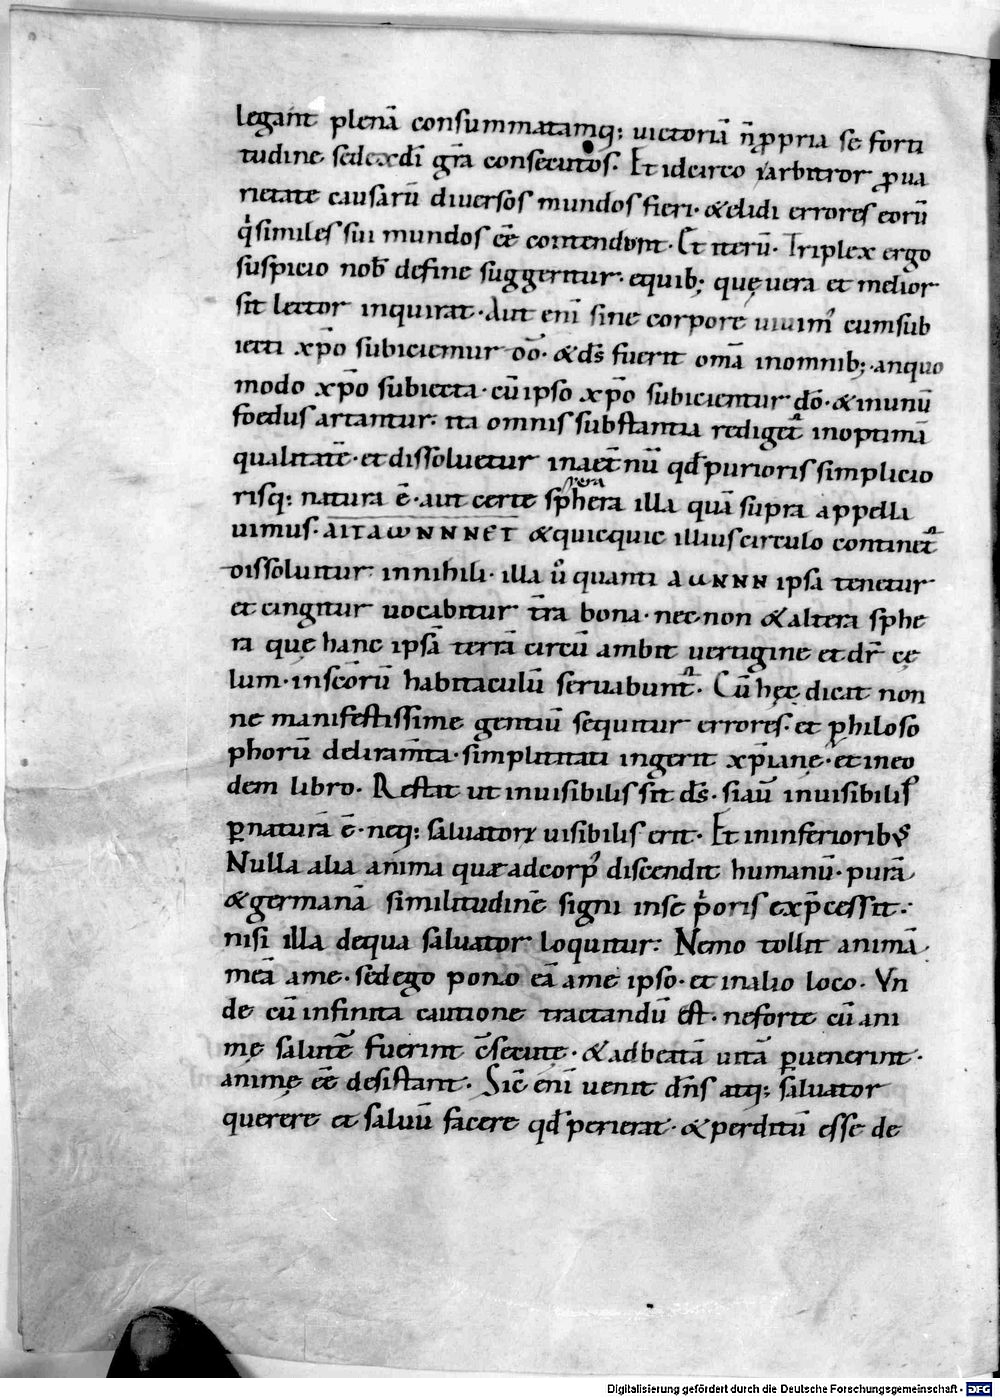 legant plenā consummatamq; uictoriā ñ ꝓpria se forti
tudine sed ex dī gr̄a consecutos. Et idcirco arbitror ꝓ ua
rietate causarū diuersos mundos fieri. & elidi errores eorū
qͥ similes sui mundos ēē contendunt. Et iterū. Triplex ergo
suspicio nob̄ de fine suggeritur. e quib; quę uera et melior
sit lector inquirat. Aut eni̅ sine corpore uiuim᾽ cum sub
iecti xp̄o subiciemur dō. & ds̄ fuerit om̄a in omnib;. an quo
modo xp̄o subiecta. cū ipso xp̄o subicientur dō. & in unū
foedus artantur. ita omnis substantia redigetᷣ in optimā
qualitatē. et dissoluetur in aet̄nū qd̄ purioris simplicio
risq; natura ē. aut certe sphera illa quā supra appella
uimus. ΑΙΤΑωΝΝΝΕΤ & quicquic illius circulo continetᷣ
dissoluitur in nihili. illa ū quanti ΑωΝΝΝ ipsa tenetur
et cingitur uocabitur t̄ra bona. nec non & altera sphe
ra quę hanc ipsā terrā circū ambit uertigine et dr̄ cę
lum. in sc̄orū habitaculū seruabuntᷣ. Cū hęc dicat non
ne manifestissime gentiū sequitur errores. et philoso
phorū deliram̄ta. simplicitati ingerit xp̄ianę. et in eo
dem libro. Restat ut inuisibilis sit ds̄. si aū inuisibilis
ꝑ naturā ē. neq; saluatori uisibilis erit. Et in inferiorib;
Nulla alia anima quæ ad corp᾽ discendit humanū. purā
& germanā similitudinē signi in se pͥoris exp̄cessit.
nisi illa de qua saluator loquitur: Nemo tollit animā
meā a me. sed ego pono eā a me ipso. et in alio loco. Vn
de cū infinita cautione tractandū est. ne forte cū ani
mę salutē fuerint c̄secutę. & ad beatā uitā ꝑuenerint.
animę ēē desistant. Sic̄ eni̅ uenit dn̄s atq; saluator
querere et saluū facere qd̄ perierat. & perditū esse de
Digitalisierung gefördert durch die Deutsche Forschungsgemeinschaft - DFG